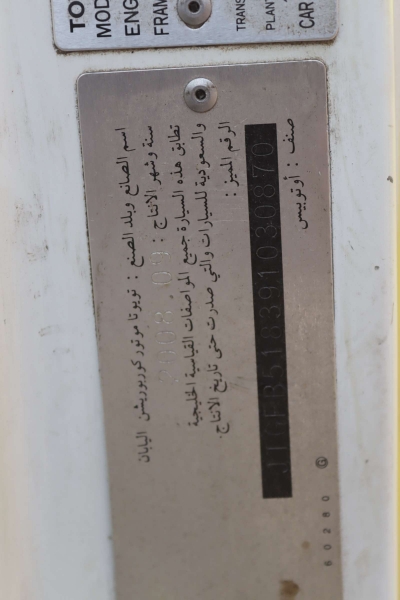 TO
MOD
ENG
FRAM
TRANS
PLANT
CAR
اسم الصانع وبلد الصنع : تويوتا موتور كوربوريشن اليابان
سنة وشهر الانتاج : 2008. 09
تطابق هذه السيارة جميع المواصفات القياسية الخليجية
والسعودية للسيارات والتي صدرت حتى تاريخ الانتاج.
الرقم المميز :
JTGFB518391030870
صنف : أوتوبيس
60280